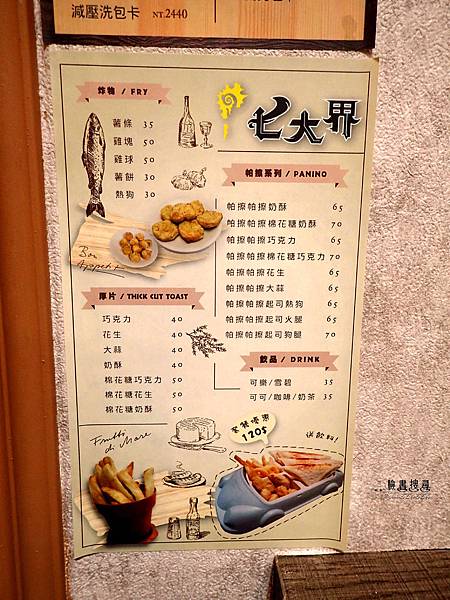 減壓洗包卡 NT.2440
七大界
炸物 / FRY
薯條 35
雞塊 50
雞球 50
薯餅 30
熱狗 30
Bon Appetit
厚片 / THICK CUT TOAST
巧克力 40
花生 40
大蒜 40
奶酥 40
棉花糖巧克力 50
棉花糖花生 50
棉花糖奶酥 50
Frutti di Mare
帕擦系列 / PANINO
帕擦帕擦奶酥 65
帕擦帕擦棉花糖奶酥 70
帕擦帕擦巧克力 65
帕擦帕擦棉花糖巧克力 70
帕擦帕擦花生 65
帕擦帕擦大蒜 65
帕擦帕擦起司熱狗 65
帕擦帕擦起司火腿 65
帕擦帕擦起司狗腿 70
飲品 / DRINK
可樂/雪碧 35
可可/咖啡/奶茶 35
套餐優惠
120$
送飲料!
臉書搜尋